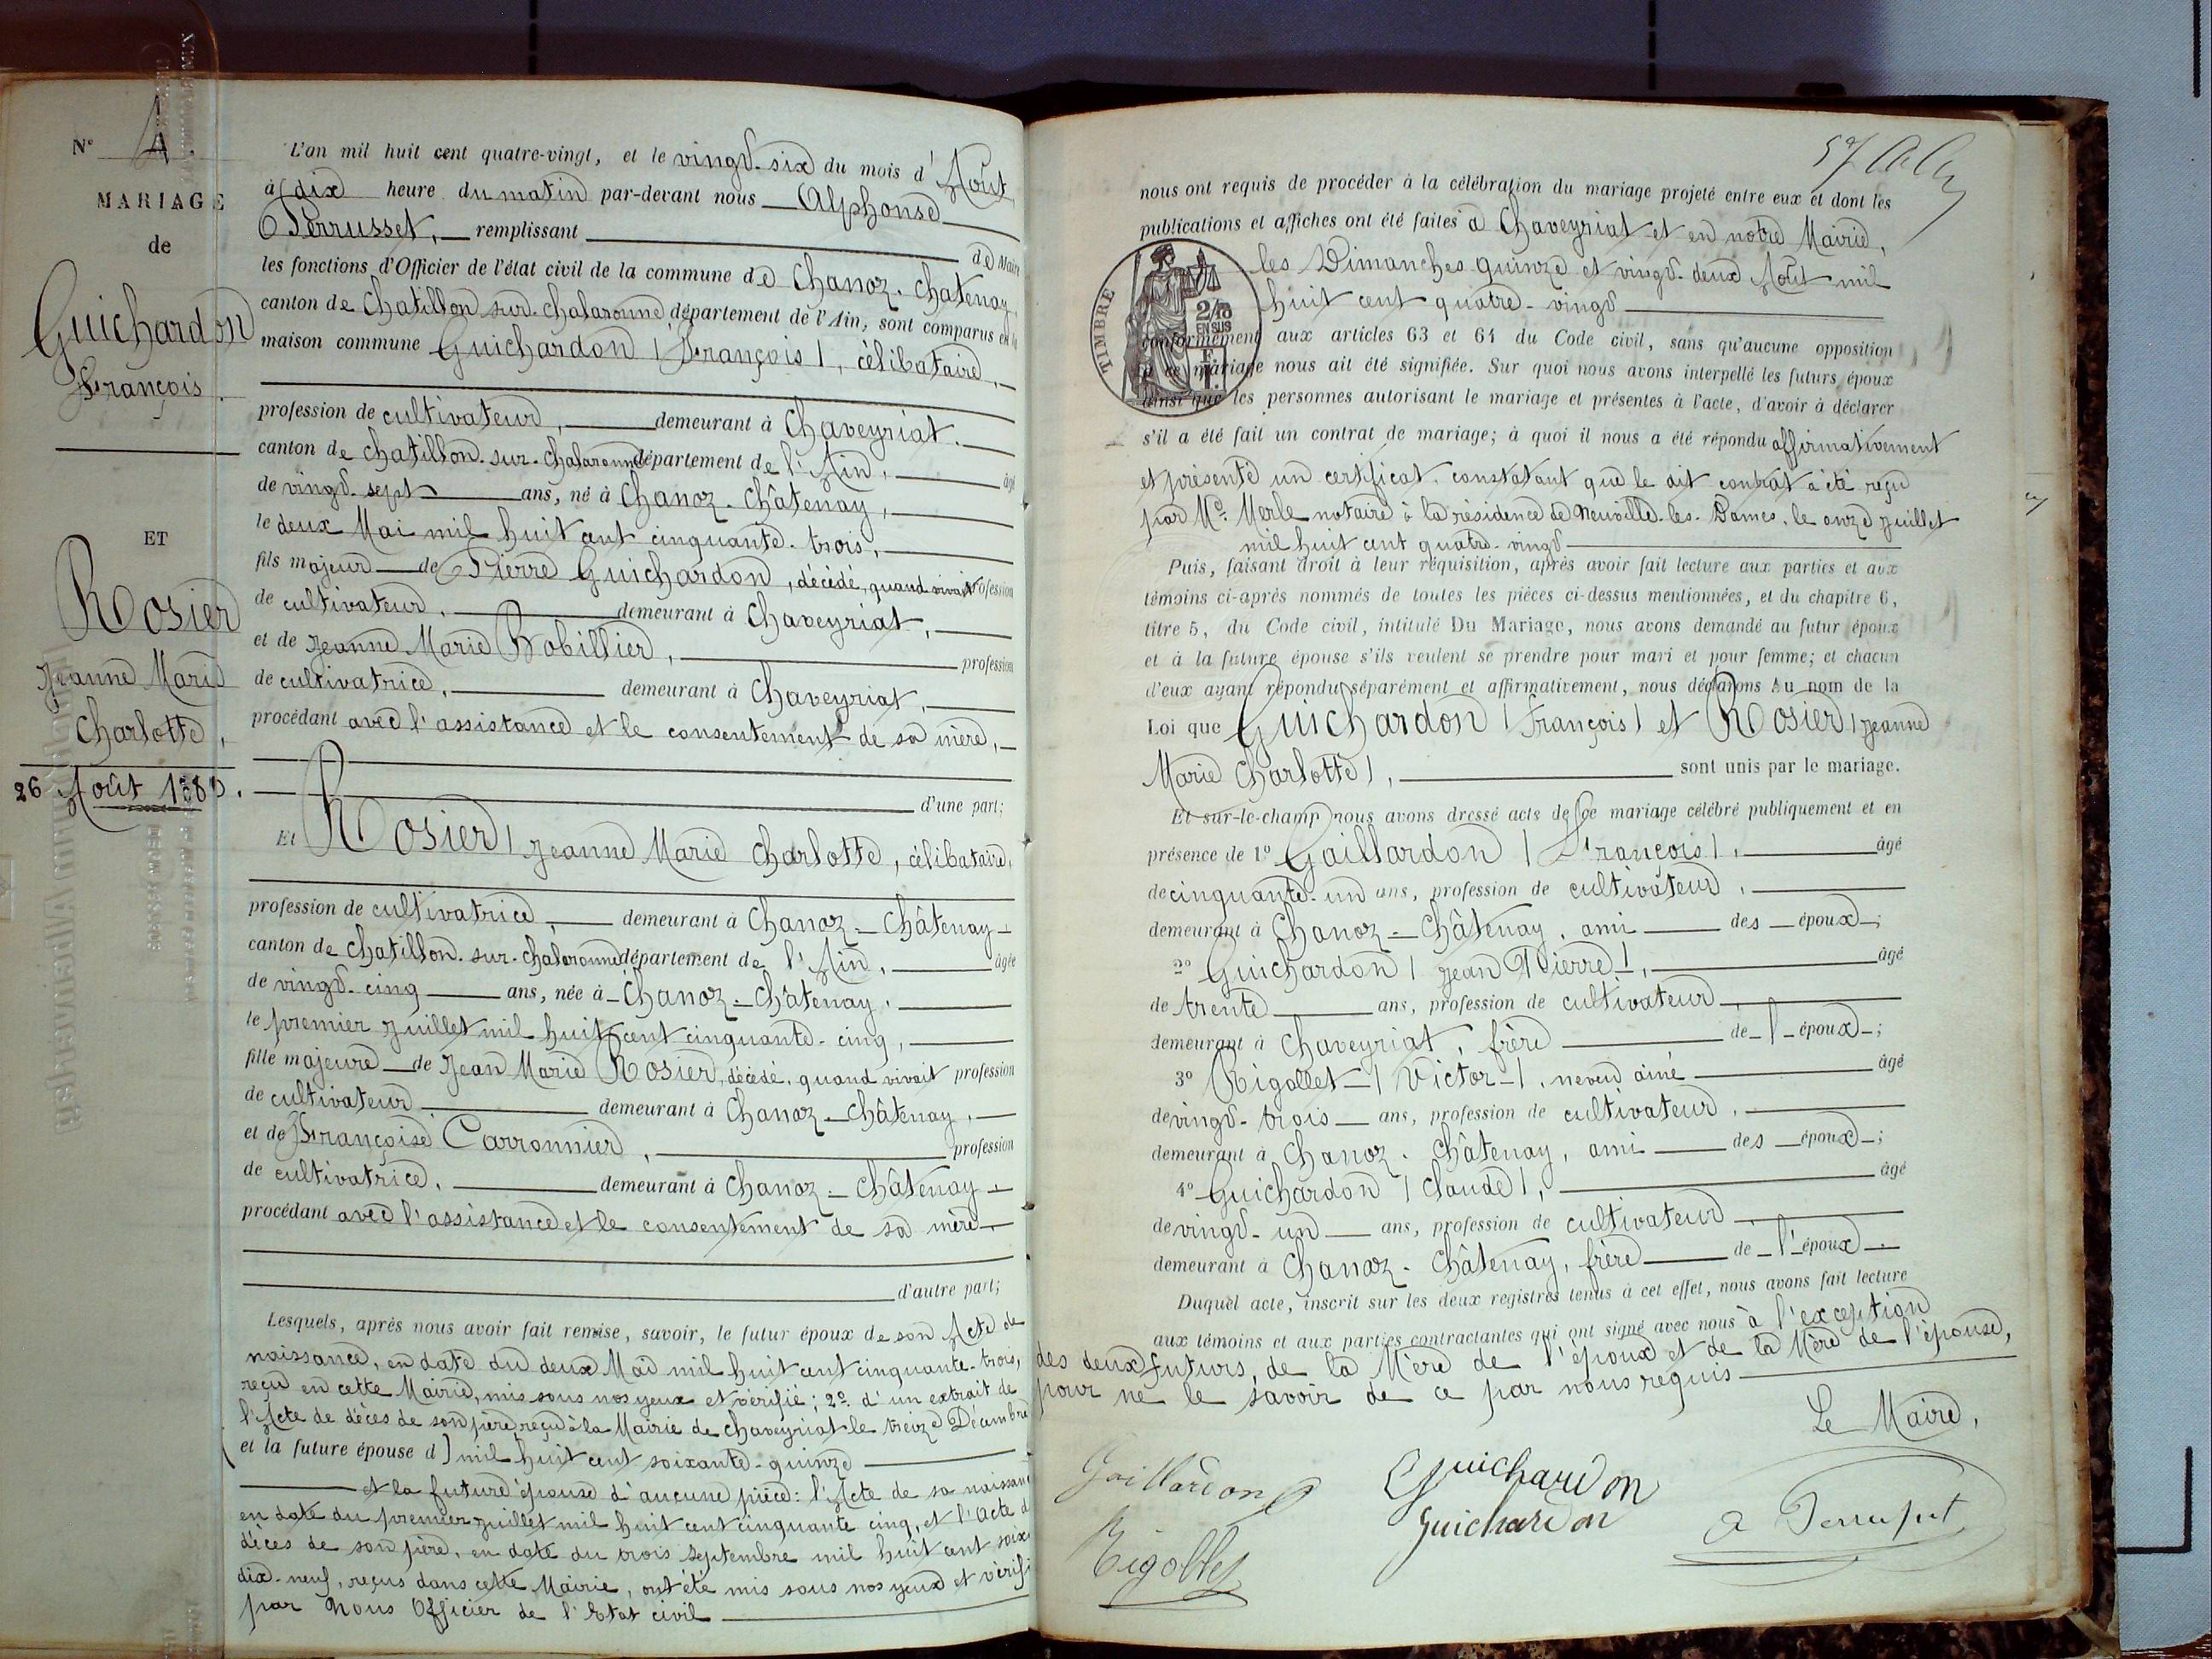 N° 4.
MARIAGE
de
Guichardon
François.
ET
Rosier
Jeanne Marie
Charlotte,
26 Août 1880.
L'an mil huit cent quatre-vingt, et le vingt-six du mois d'Août
à dix heure du matin par-devant nous Alphonse
Perrusset, remplissant de Maire
les fonctions d'Officier de l'état civil de la commune de Chanoz-Chatenay
canton de Chatillon-sur-Chalaronne département de l'Ain, sont comparus en la
maison commune Guichardon (François), célibataire,
profession de cultivateur, demeurant à Chaveyriat.
canton de Chatillon-sur-Chalaronne département de l'Ain, âgé
de vingt-sept ans, né à Chanoz-Châtenay,
le deux Mai mil huit cent cinquante-trois,
fils majeur de Pierre Guichardon, décédé, quand vivait profession
de cultivateur, demeurant à Chaveyriat,
et de Jeanne Marie Robillier, profession
de cultivatrice, demeurant à Chaveyriat,
procédant avec l'assistance et le consentement de sa mère,
d'une part;
Et Rosier (Jeanne Marie Charlotte, célibataire,
profession de cultivatrice, demeurant à Chanoz-Châtenay
canton de Chatillon-sur-Chalaronne département de l'Ain, âgée
de vingt-cinq ans, née à Chanoz-Châtenay,
le premier Juillet mil huit cent cinquante-cinq,
fille majeure de Jean Marie Rosier, décédé, quand vivait profession
de cultivateur demeurant à Chanoz-Châtenay,
et de Françoise Carronnier, profession
de cultivatrice, demeurant à Chanoz-Châtenay
procédant avec l'assistance et le consentement de sa mère
d'autre part;
Lesquels, après nous avoir fait remise, savoir, le futur époux de son Acte de
naissance, en date du deux Mai mil huit cent cinquante-trois,
reçu en cette Mairie, mis sous nos yeux et vérifié; 2° d'un extrait de
l'Acte de décès de son père reçu à la Mairie de Chaveyriat le treize Décembre
(et la future épouse d) mil huit cent soixante-quinze
et la future épouse d'aucune pièce: l'Acte de sa naissance
en date du premier Juillet mil huit cent cinquante cinq, et l'acte de
décès de son père, en date du trois Septembre mil huit cent soix
dix-neuf, reçus dans cette Mairie, ont été mis sous nos yeux et vérifi
par Nous Officier de l'Etat civil
57
nous ont requis de procéder à la célébration du mariage projeté entre eux et dont les
publications et affiches ont été faites à Chaveyriat et en notre Mairie,
les Dimanches quinze et vingt-deux Août mil
huit cent quatre-vingt
TIMBRE
2/10
EN SUS
conformément aux articles 63 et 64 du Code civil, sans qu'aucune opposition
à ce mariage nous ait été signifiée. Sur quoi nous avons interpellé les futurs époux
ainsi que les personnes autorisant le mariage et présentes à l'acte, d'avoir à déclarer
s'il a été fait un contrat de mariage; à quoi il nous a été répondu affirmativement
et présenté un certificat, constatant que le dit contrat a été reçu
par Me. Merle notaire à la résidence de Neuville-les-Dames, le onze juillet
mil huit cent quatre-vingt
Puis, faisant droit à leur réquisition, après avoir fait lecture aux parties et aux
témoins ci-après nommés de toutes les pièces ci-dessus mentionnées, et du chapitre 6,
titre 5, du Code civil, intitulé Du Mariage, nous avons demandé au futur époux
et à la future épouse s'ils veulent se prendre pour mari et pour femme; et chacun
d'eux ayant répondu séparément et affirmativement, nous déclarons Au nom de la
Loi que Guichardon (François) et Rosier (Jeanne
Marie Charlotte), sont unis par le mariage.
Et sur-le-champ nous avons dressé acte de ce mariage célébré publiquement et en
présence de 1° Gaillardon (François), âgé
de cinquante-un ans, profession de cultivateur,
demeurant à Chanoz-Châtenay, ami des époux;
2° Guichardon (Jean Pierre), âgé
de trente ans, profession de cultivateur,
demeurant à Chaveyriat, frère de l'époux;
3° Rigollet (Victor), neveu ainé âgé
de vingt-trois ans, profession de cultivateur,
demeurant à Chanoz-Châtenay, ami des époux;
4° Guichardon (Claude), âgé
de vingt-un ans, profession de cultivateur
demeurant à Chanoz-Châtenay, frère de l'époux.
Duquel acte, inscrit sur les deux registres tenus à cet effet, nous avons fait lecture
aux témoins et aux parties contractantes qui ont signé avec nous à l'exception
des deux futurs, de la Mère de l'époux et de la Mère de l'épouse,
pour ne le savoir de ce par nous requis
Le Maire,
Gaillardon
Guichardon
Guichardon
Rigollet
A Perrusset